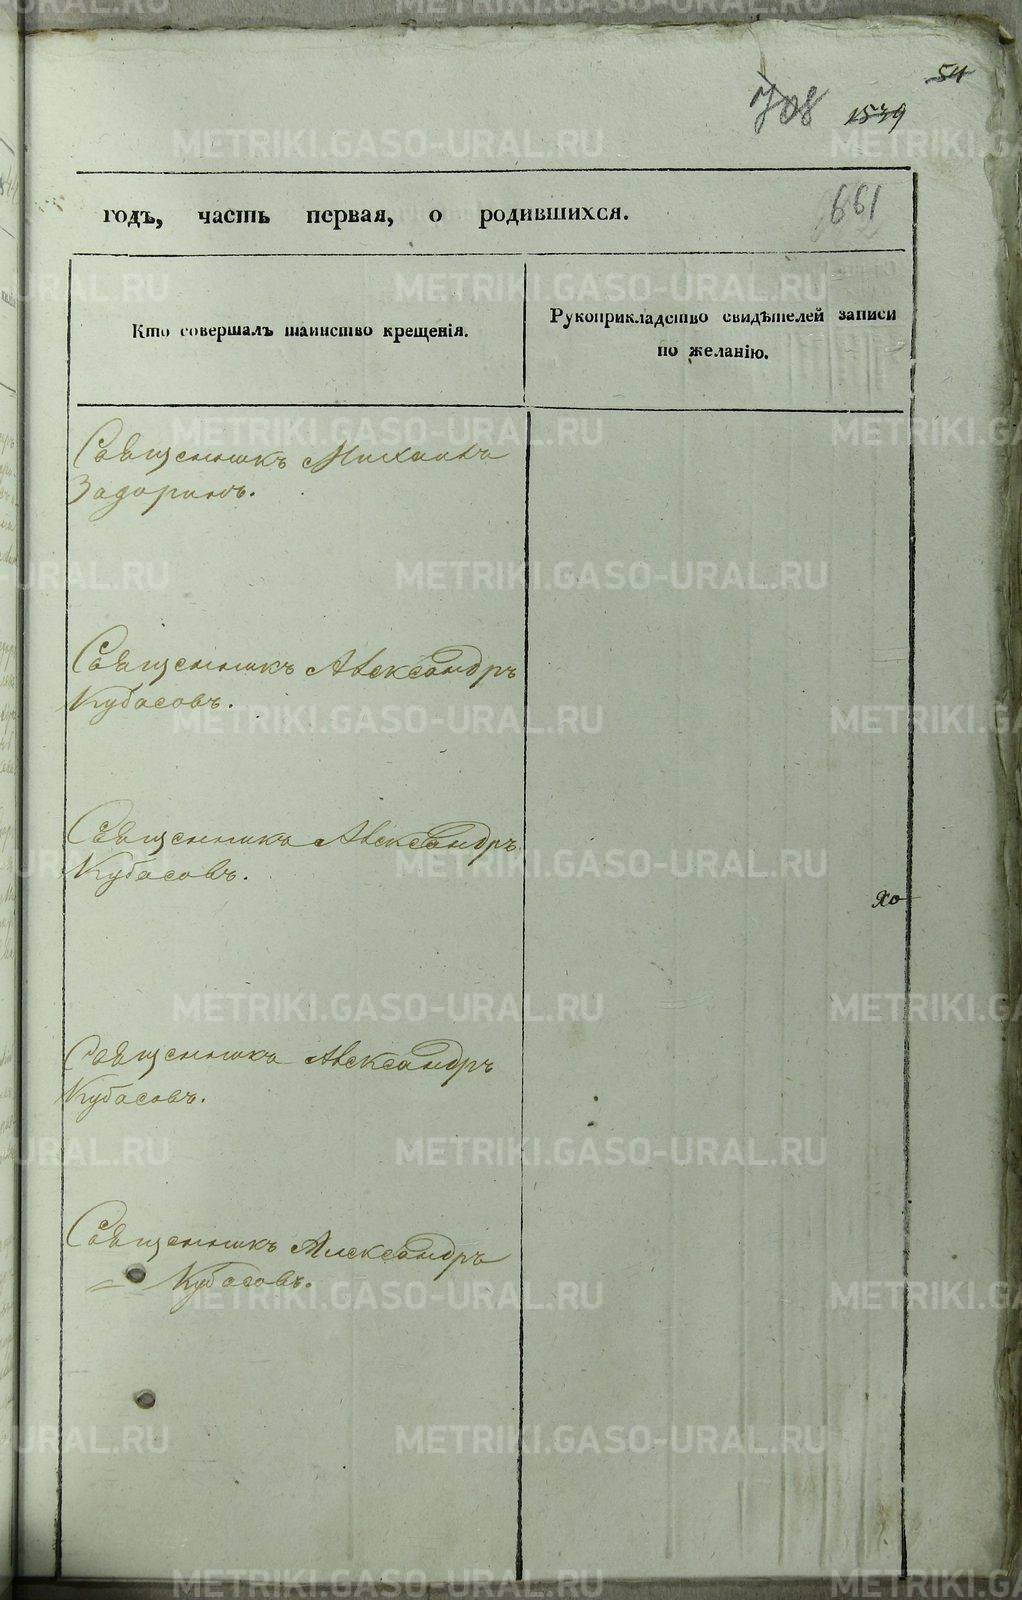 54
708 1539
661
годъ, часть первая, о родившихся.
Кто совершалъ таинство крещенія.
Рукоприкладство свидѣтелей записи
по желанію.
Священникъ Михаилъ
Задоринъ.
Священникъ Александръ
Кубасовъ.
Священникъ Александръ
Кубасовъ.
Священникъ Александръ
Кубасовъ.
Священникъ Александръ
Кубасовъ.
METRIKI.GASO-URAL.RU